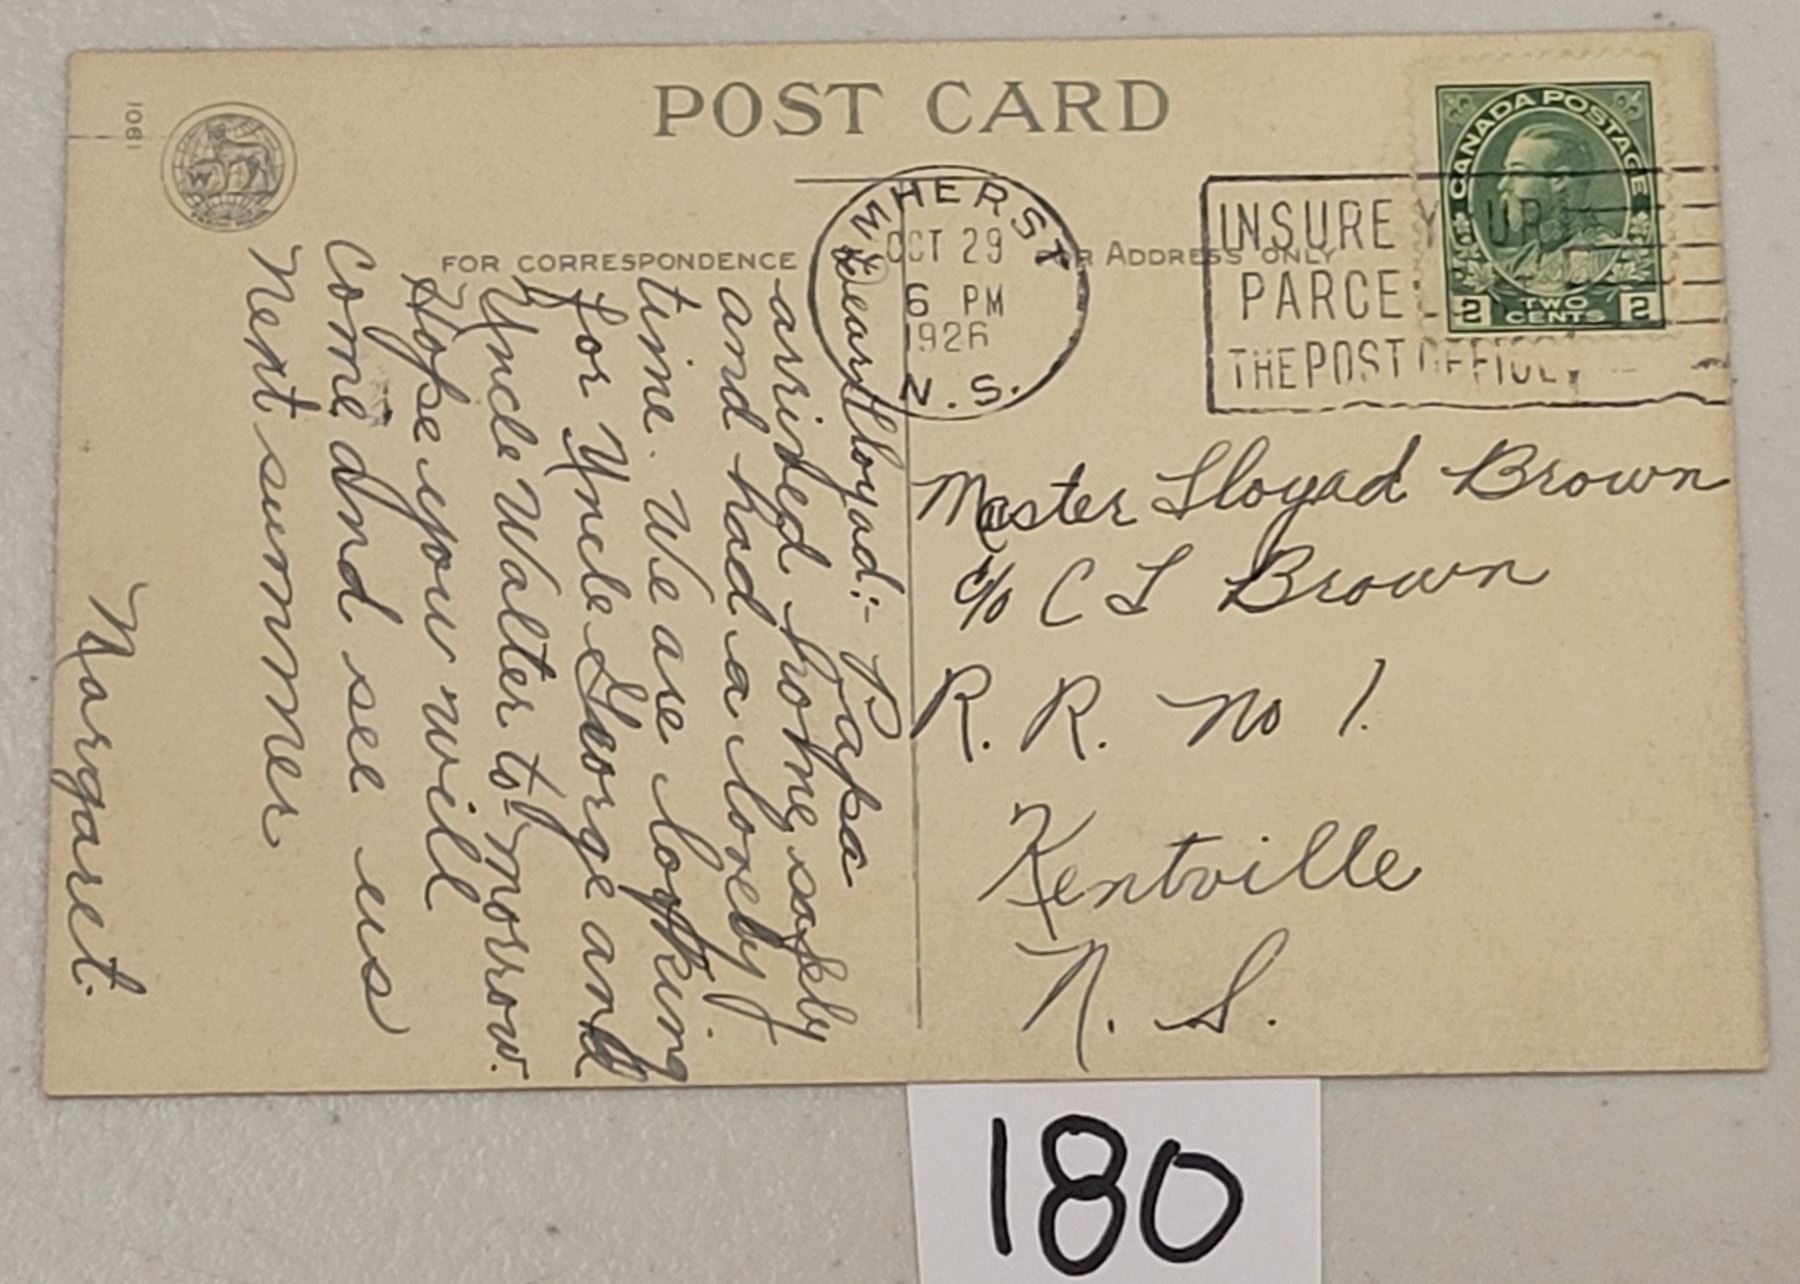 POST CARD
1061
FOR CORRESPONDENCE
FOR ADDRESS ONLY
AMHERST
OCT 29
6 PM
1926
N.S.
INSURE YOUR
PARCELS
THE POST OFFICE
CANADA POSTAGE
2 TWO CENTS 2
Dear Lloyad:- Papa
arrived home safely
and had a lovely
time. We are looking
for Uncle George and
Uncle Walter to-morrow.
Hope you will
come and see us
next summer
Margaret.
Master Lloyad Brown
c/o C L Brown
R. R. No 1.
Kentville
N. S.
180